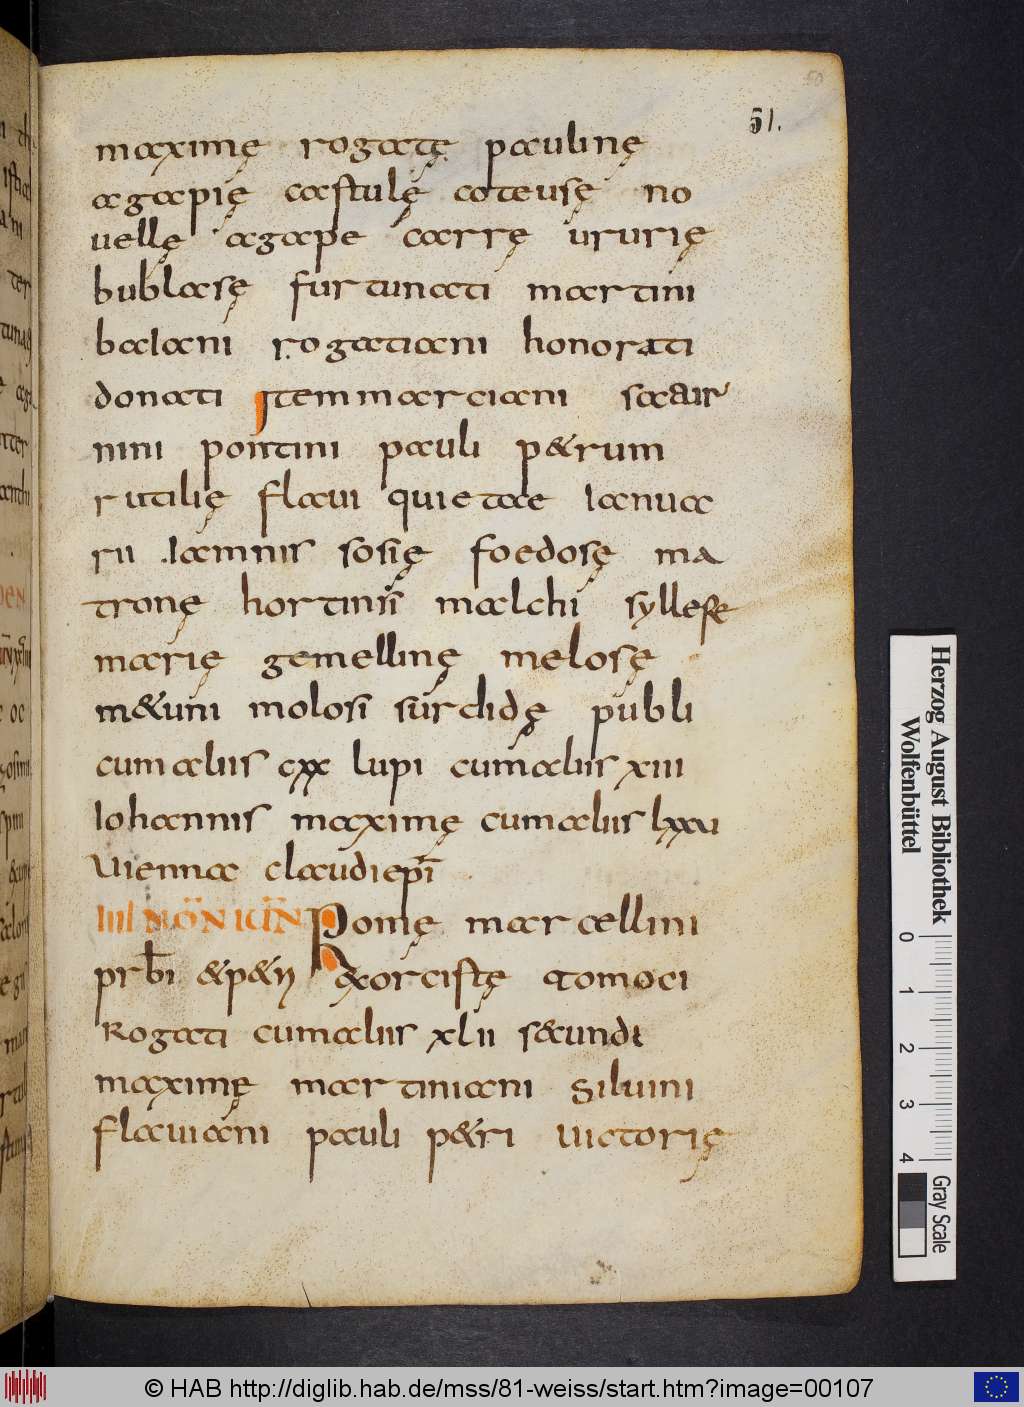 50
51.
maximę rogatę paulinę
agapię castulę coteusę no
uellę agape carrę ururię
bublasę furtunati martini
balani rogatiani honorati
donati Item marciani satur
nini pontini pauli p&rum
rutilię flaui quietae Ianua
rii Iamnis sosię foedosę ma
tronę hortinsi malchi syllefe
marię gemellinę melosę
m&uni molosi surdidę publi
cumaliis cxx lupi cumaliis xiii
Iohannis maximę cumaliis lxxu
Uienna claudi epi
IIII NON IUN Romę marcellini
prbi &p&ri exorcistę tomoci
Rogati cumaliis xlii s&undi
maximę martiniani Siluini
flauiani pauli p&ri uictorię
Herzog August Bibliothek
Wolfenbüttel
0 1 2 3 4
Gray Scale
© HAB http://diglib.hab.de/mss/81-weiss/start.htm?image=00107